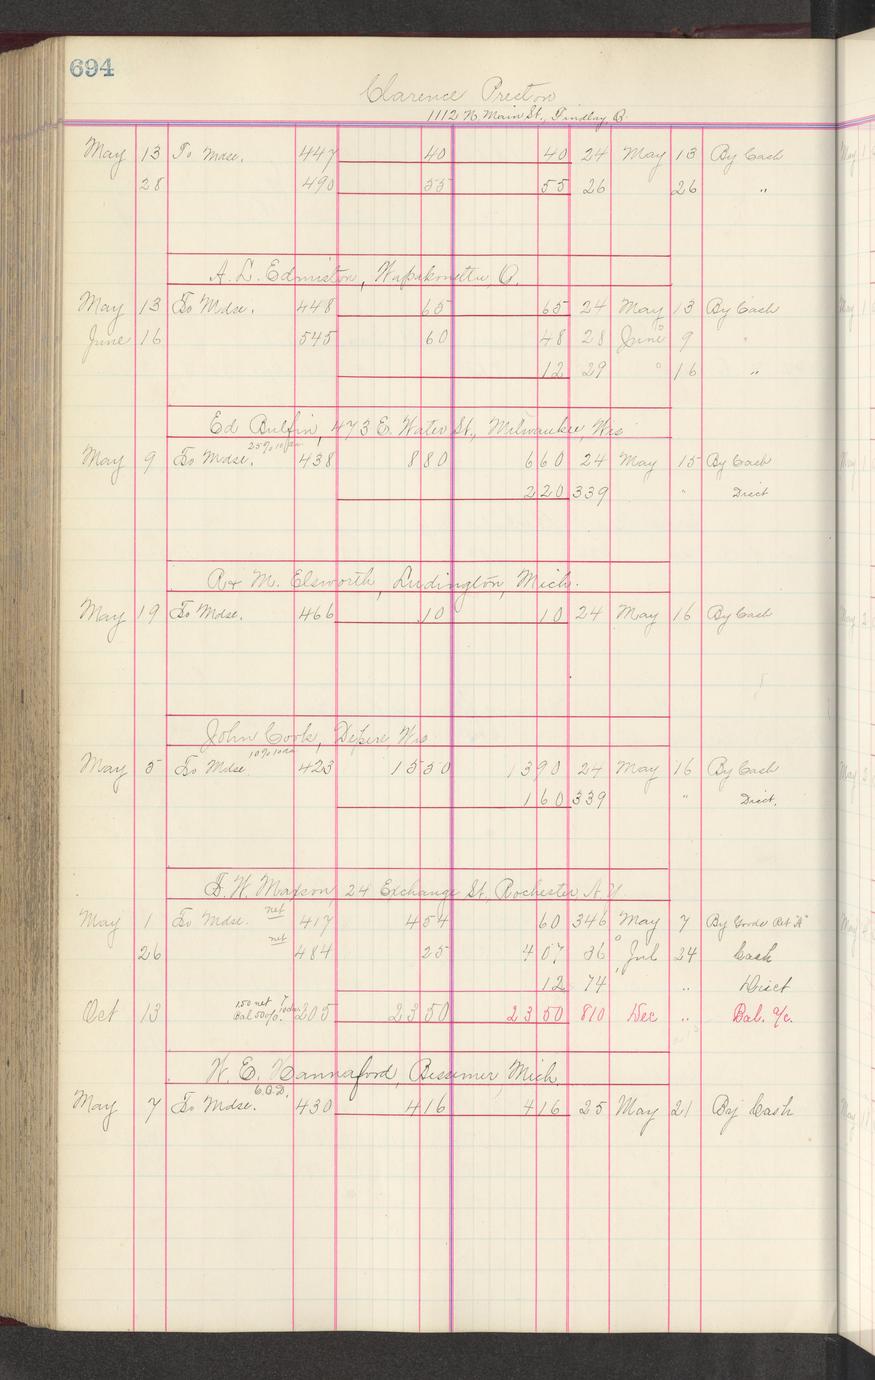 694
Clarence Preston
1112 N. Main St., Findlay, O.
May 13 To Mdse. 447 40 40 24 May 13 By Cash
28 490 55 55 26 26 "
A. L. Edmiston, Wapakonetta, O.
May 13 To Mdse. 448 65 65 24 May 13 By Cash
June 16 545 60 48 28 June 9 "
12 29 " 16 "
Ed Bulfin, 473 E. Water St., Milwaukee, Wis
25% 10 da
May 9 To Mdse. 438 8 80 6 60 24 May 15 By Cash
2 20 339 " Disct
R & M. Elsworth, Ludington, Mich.
May 19 To Mdse. 466 10 10 24 May 16 By Cash
John Cook, Depere, Wis
10% 10 da
May 5 To Mdse 423 15 50 13 90 24 May 16 By Cash
1 60 339 " Disct.
F. W. Maxson, 24 Exchange St., Rochester N.Y.
May 1 To Mdse. net 417 4 54 60 346 May 7 By Goods Ret'd
26 net 484 25 4 07 36 Jul 24 Cash
12 74 " Disct
Oct 13 150 net 205 23 50 23 50 810 Dec " Bal. a/c.
Bal 50% 10 da
W. E. Hannaford, Bessemer, Mich.
C.O.D.
May 7 To Mdse. 430 4 16 4 16 25 May 21 By Cash